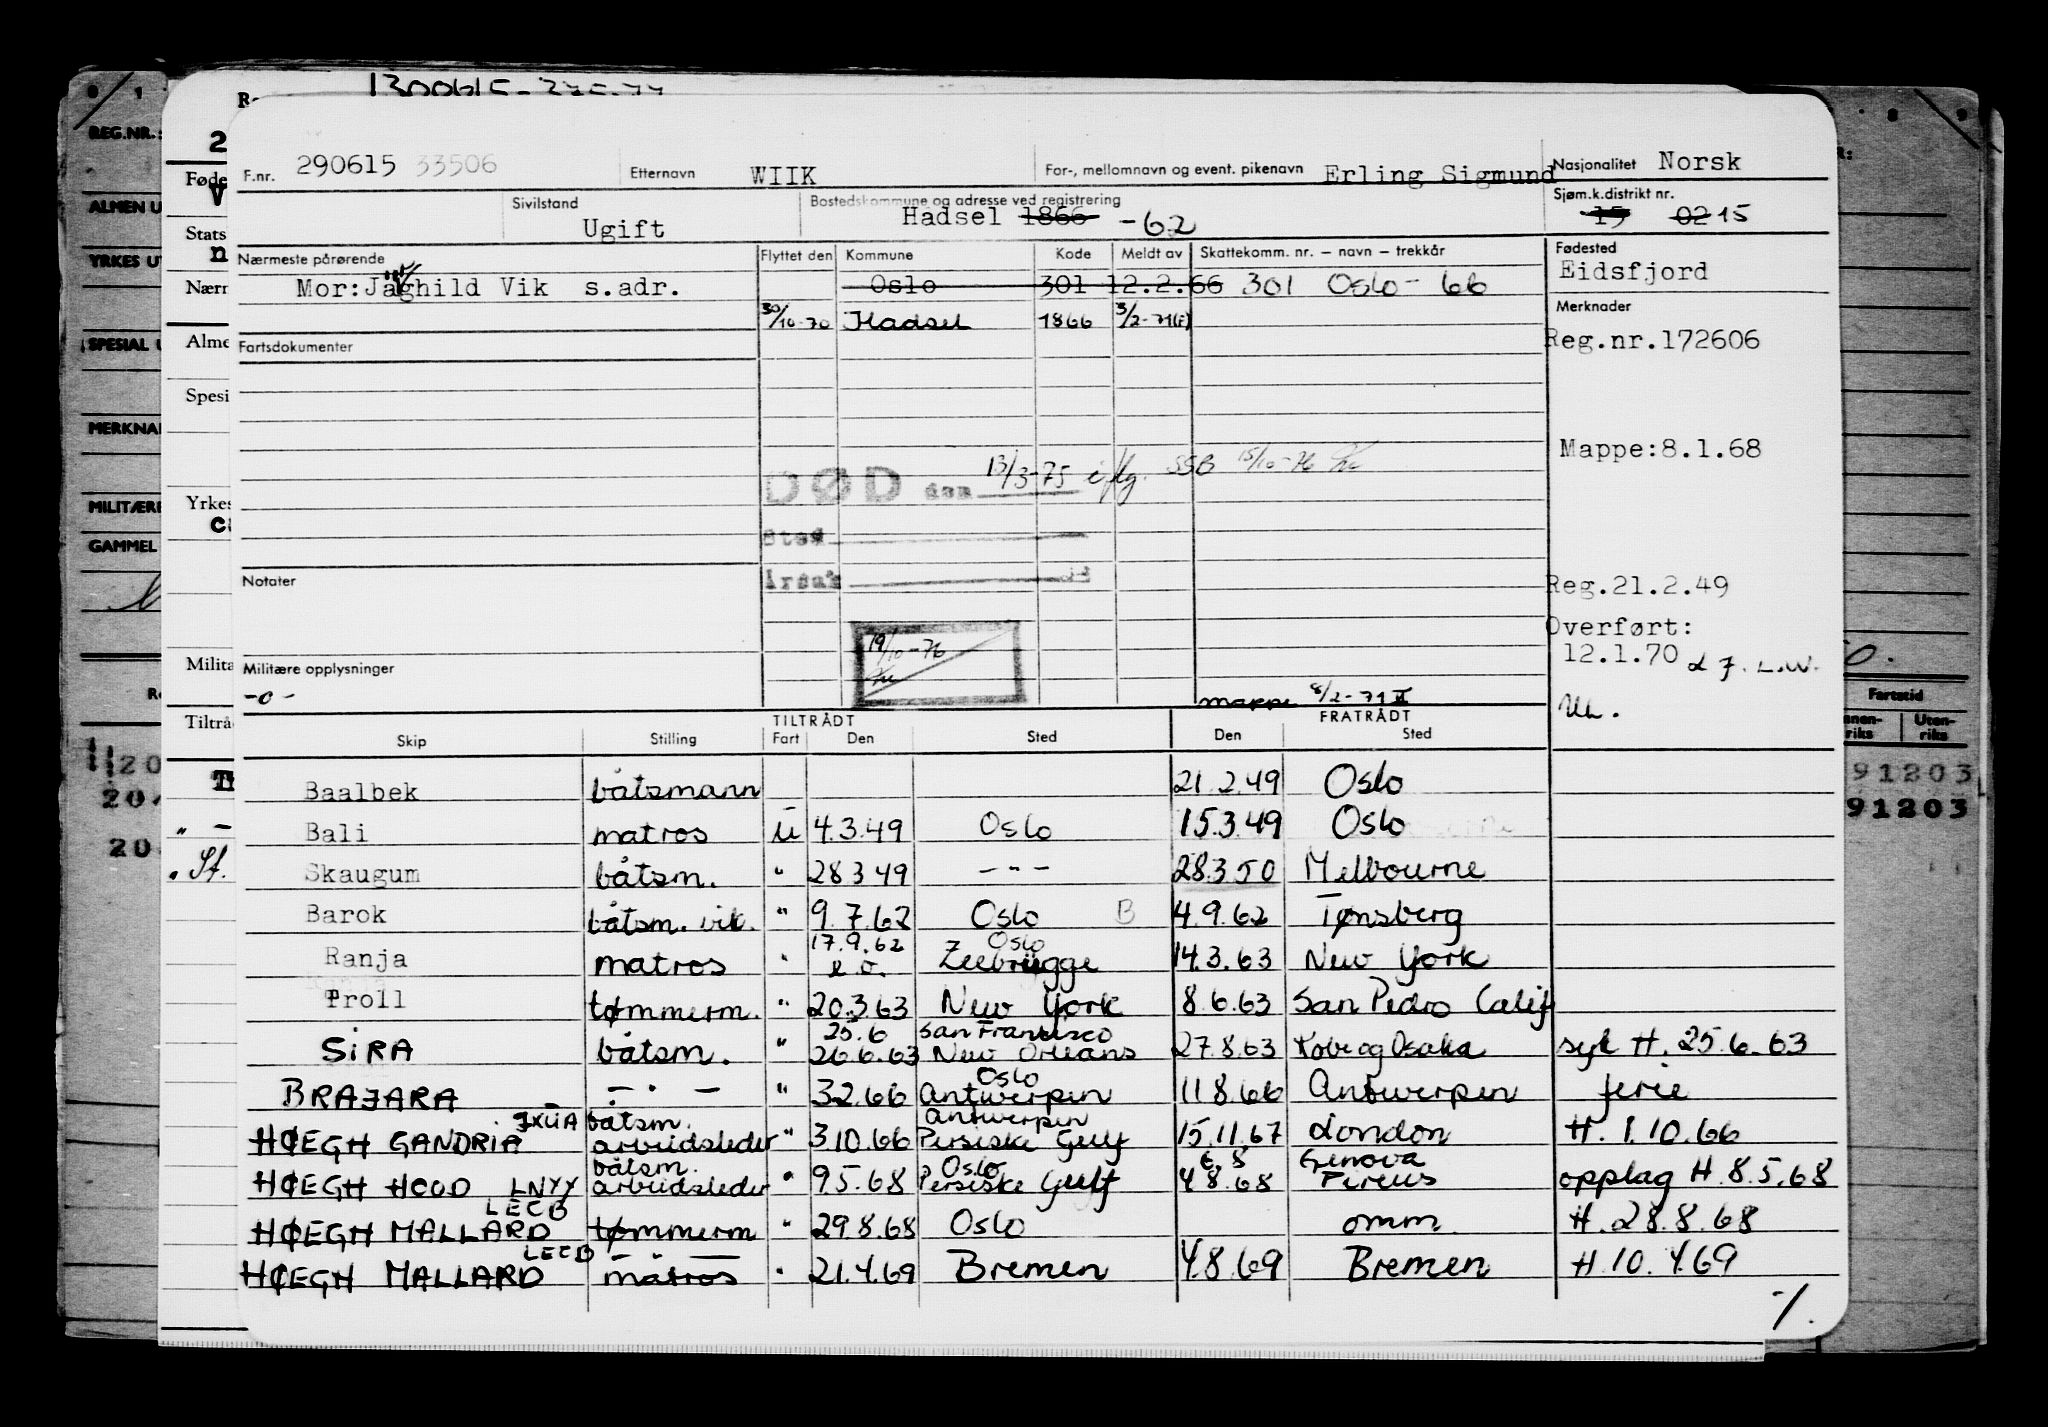 130061
F.nr. 290615 33506 Etternavn WIIK For-, mellomnavn og event. pikenavn Erling Sigmund Nasjonalitet Norsk
Sivilstand Ugift Bostedskommune og adresse ved registrering Hadsel 1866 -62 Sjøm.k.distrikt nr. 15 02 15
Nærmeste pårørende Flyttet den Kommune Kode Meldt av Skattekomm. nr. – navn – trekkår Fødested
Mor: Jaghild Vik s.adr. Oslo 301 12.2.66 301 Oslo - 66 Eidsfjord
30/10-70 Hadsel 1866 3/2-71(F) Merknader
Fartsdokumenter Reg.nr.172606
Mappe:8.1.68
DØD den 13/3-75 iflg. SSB 15/10-76
Sted
Årsak
Notater Reg.21.2.49
Overført:
12.1.70 L.W.
19/10-76
Militære opplysninger
-o- mappe 8/2-71
TILTRÅDT FRATRÅDT
Skip Stilling Fart Den Sted Den Sted
Baalbek båtsmann 21.2.49 Oslo
Bali matros u 4.3.49 Oslo 15.3.49 Oslo
Skaugum båtsm. " 28 3 49 - " - 28.3 50 Melbourne
Barok båtsm. vik. " 9.7.62 Oslo B 4.9.62 Tønsberg
17.9.62 Oslo
Ranja matros " e.o. Zeebrügge 14.3.63 New York
Troll tømmerm. " 20.3.63 New York 8.6.63 San Pedro Calif
25.6 San Francisco
SIRA båtsm. " 26.6.63 New Orleans 27.8.63 Kobe og Osaka syk H. 25.6.63
Oslo
BRAJARA - " - " 3.2.66 Antwerpen 11 8.66 Antwerpen ferie
JXUA båtsm. Antwerpen
HØEGH GANDRIA arbeidsleder " 3.10.66 Persiske Gulf 15.11.67 London H. 1.10.66
båtsm. Oslo 6.8 Genova
HØEGH HOOD LNYY arbeidsleder " 9.5.68 Persiske Gulf 4 8.68 Pireus opplag H. 8.5.68
LECB
HØEGH MALLARD tømmerm " 29.8.68 Oslo omm. H. 28.8.68
LECB
HØEGH MALLARD matros " 21.4.69 Bremen 4.8.69 Bremen H. 10.4.69
REG.NR.:
ALMEN U
YRKES UT
SPESIAL U
MERKNA
MILITÆRE
GAMMEL
Føde
Stats
Nærn
Alme
Spesi
Yrkes
Milita
Tiltrå
Fartstid
Uten-
riks
91203
91203